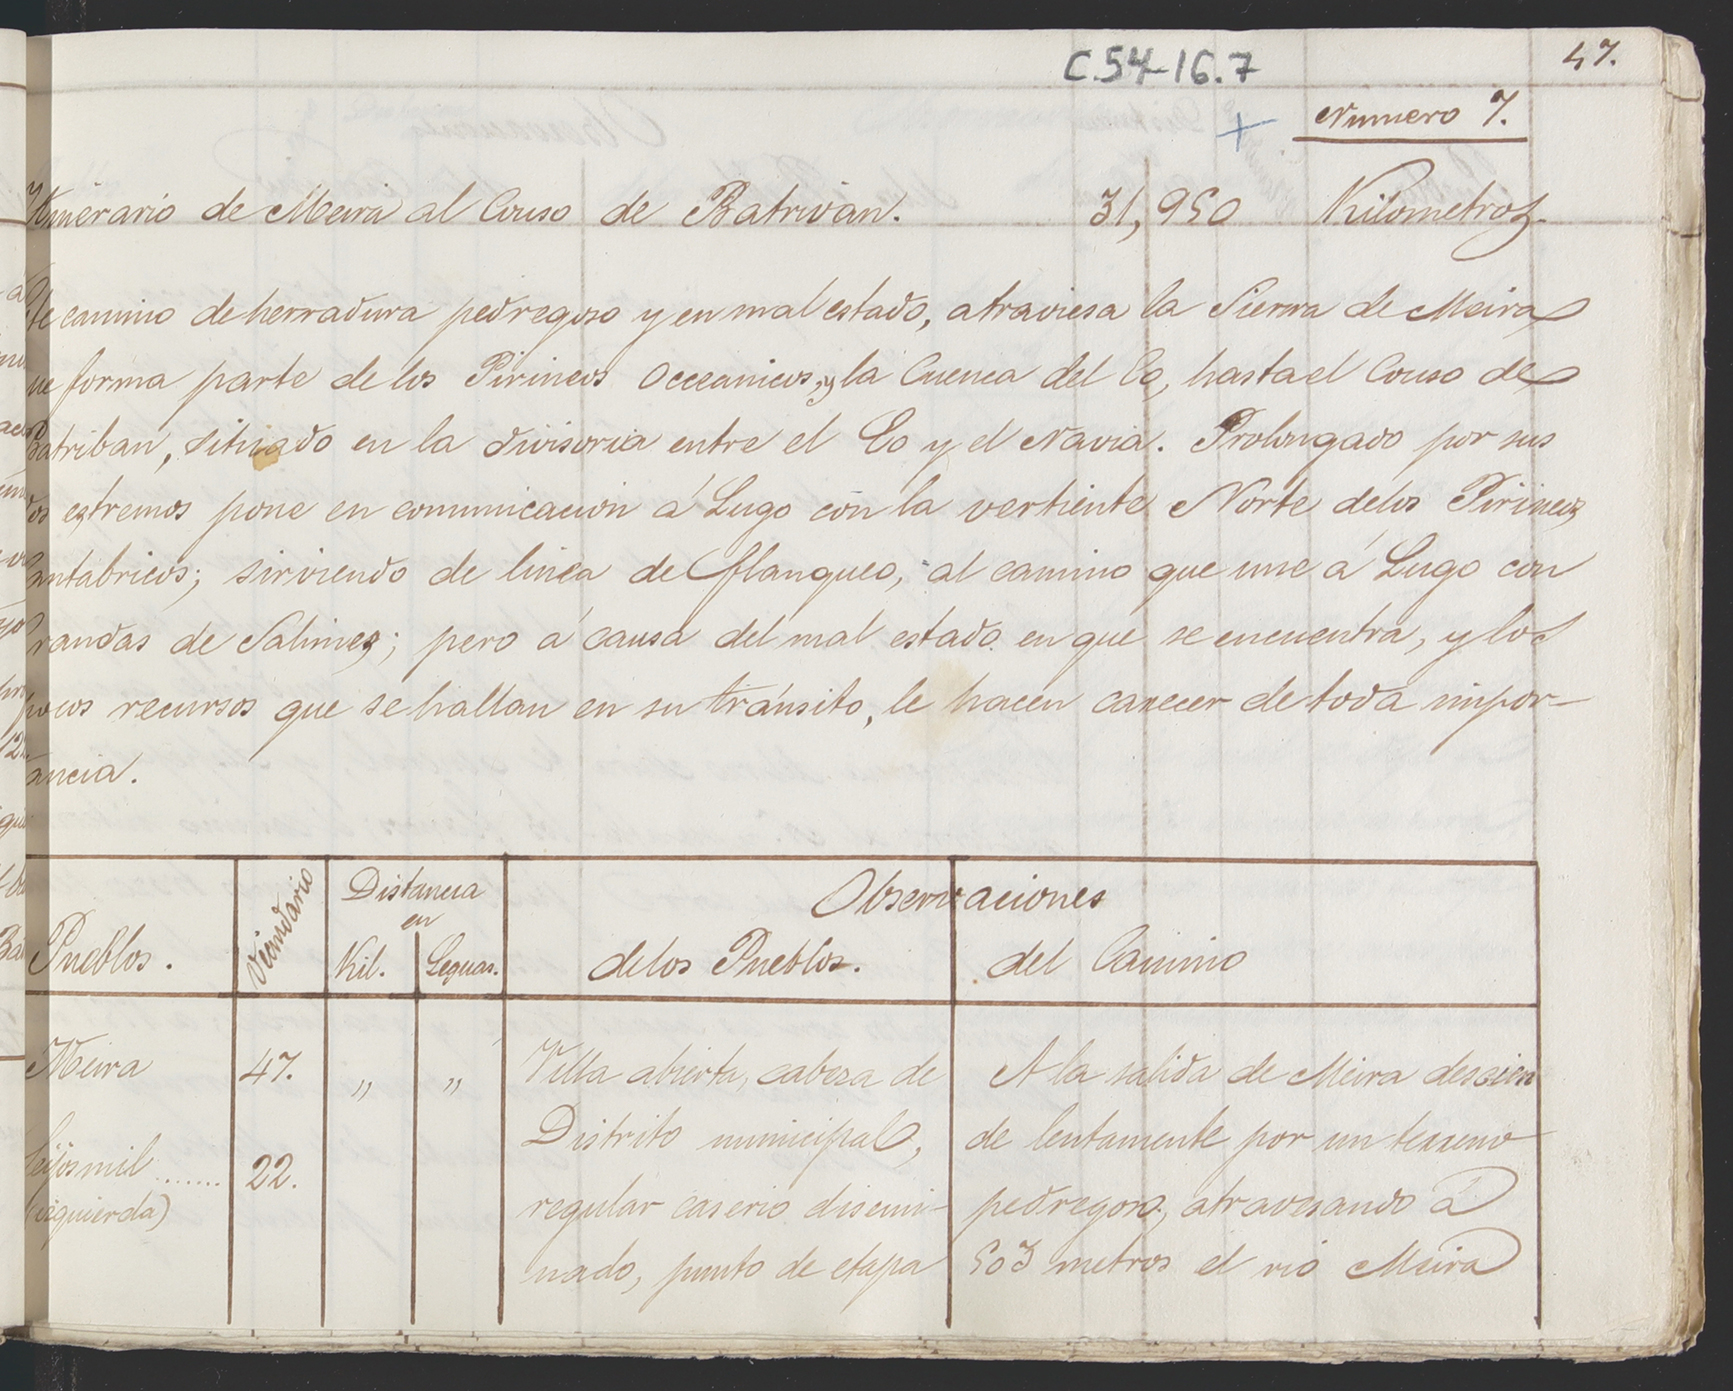 C.54-16.7
47.
Numero 7.
Itinerario de Meira al Couso de Batrivan. 31,950 Kilometros.
te camino de herradura pedregoso y en mal estado, atraviesa la Sierra de Meira
ue forma parte de los Pirineos Occeanicos, y la Cuenca del Eo, hasta el Couso de
Batriban, situado en la divisoria entre el Eo y el Navia. Prolongado por sus
os estremos pone en comunicacion á Lugo con la vertiente Norte de los Pirineos
antabricos; sirviendo de linea de flanqueo, al camino que une á Lugo con
randas de Salimes; pero á causa del mal estado en que se encuentra, y los
pocos recursos que se hallan en su tránsito, le hacen carecer de toda impor-
ancia.
Pueblos.
Vecindario
Distancia
en
Kil. Leguas.
Observaciones
de los Pueblos. del Camino
Meira 47. „ „ Villa abierta, cabeza de
Distrito municipal,
regular caserio disemi-
nado, punto de etapa
Seijosmil ....... 22.
(izquierda)
A la salida de Meira descien
de lentamente por un terreno
pedregoso, atravesando á
503 metros el rio Meira